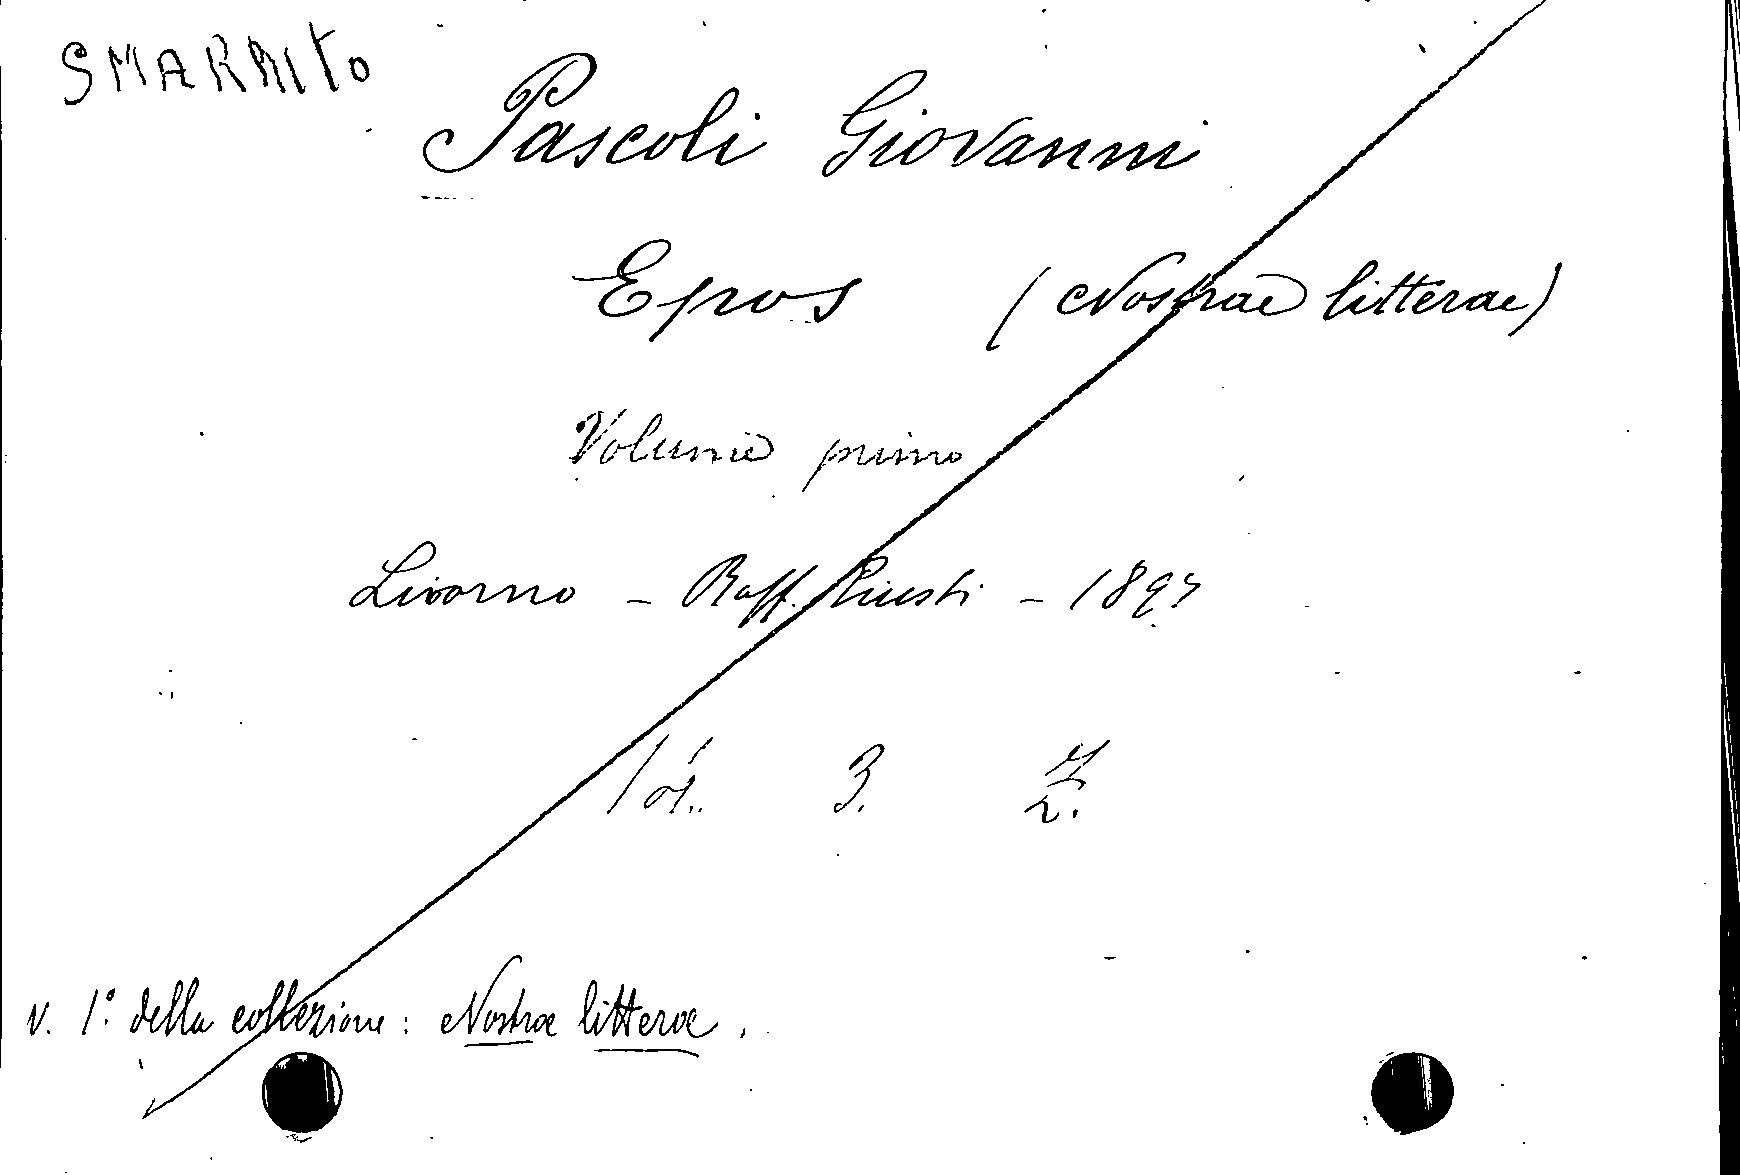 SMARRITO
Pascoli Giovanni
Epos (Nostrae litterae)
Volume primo
Livorno - Raff. Giusti - 1897
3.
v. 1º della collezione: Nostrae litterae.